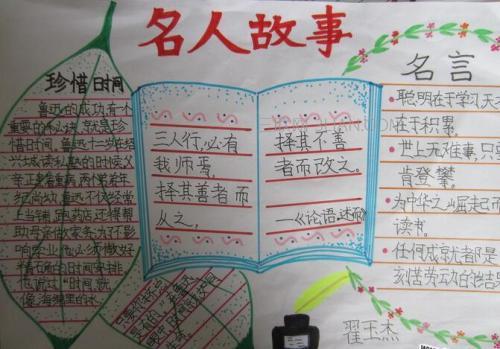 名人故事
珍惜时间
鲁迅的成功,有一个
重要的秘诀,就是珍
惜时间。鲁迅十二岁在绍
兴城读私塾的时候,父
亲正患着重病,两个弟弟年
纪尚幼,鲁迅不仅经常
上当铺,跑药店,还得帮
助母亲做家务;为不影
响学业,他必须做好
精确的时间安排
三人行,必有
我师焉,
择其善者而
从之,
择其不善
者而改之。
——《论语·述而》
名言
聪明在于学习,天
在于积累。
世上无难事,只
肯登攀。
为中华之崛起而
读书。
任何成就都是
刻苦劳动的结
翟玉杰